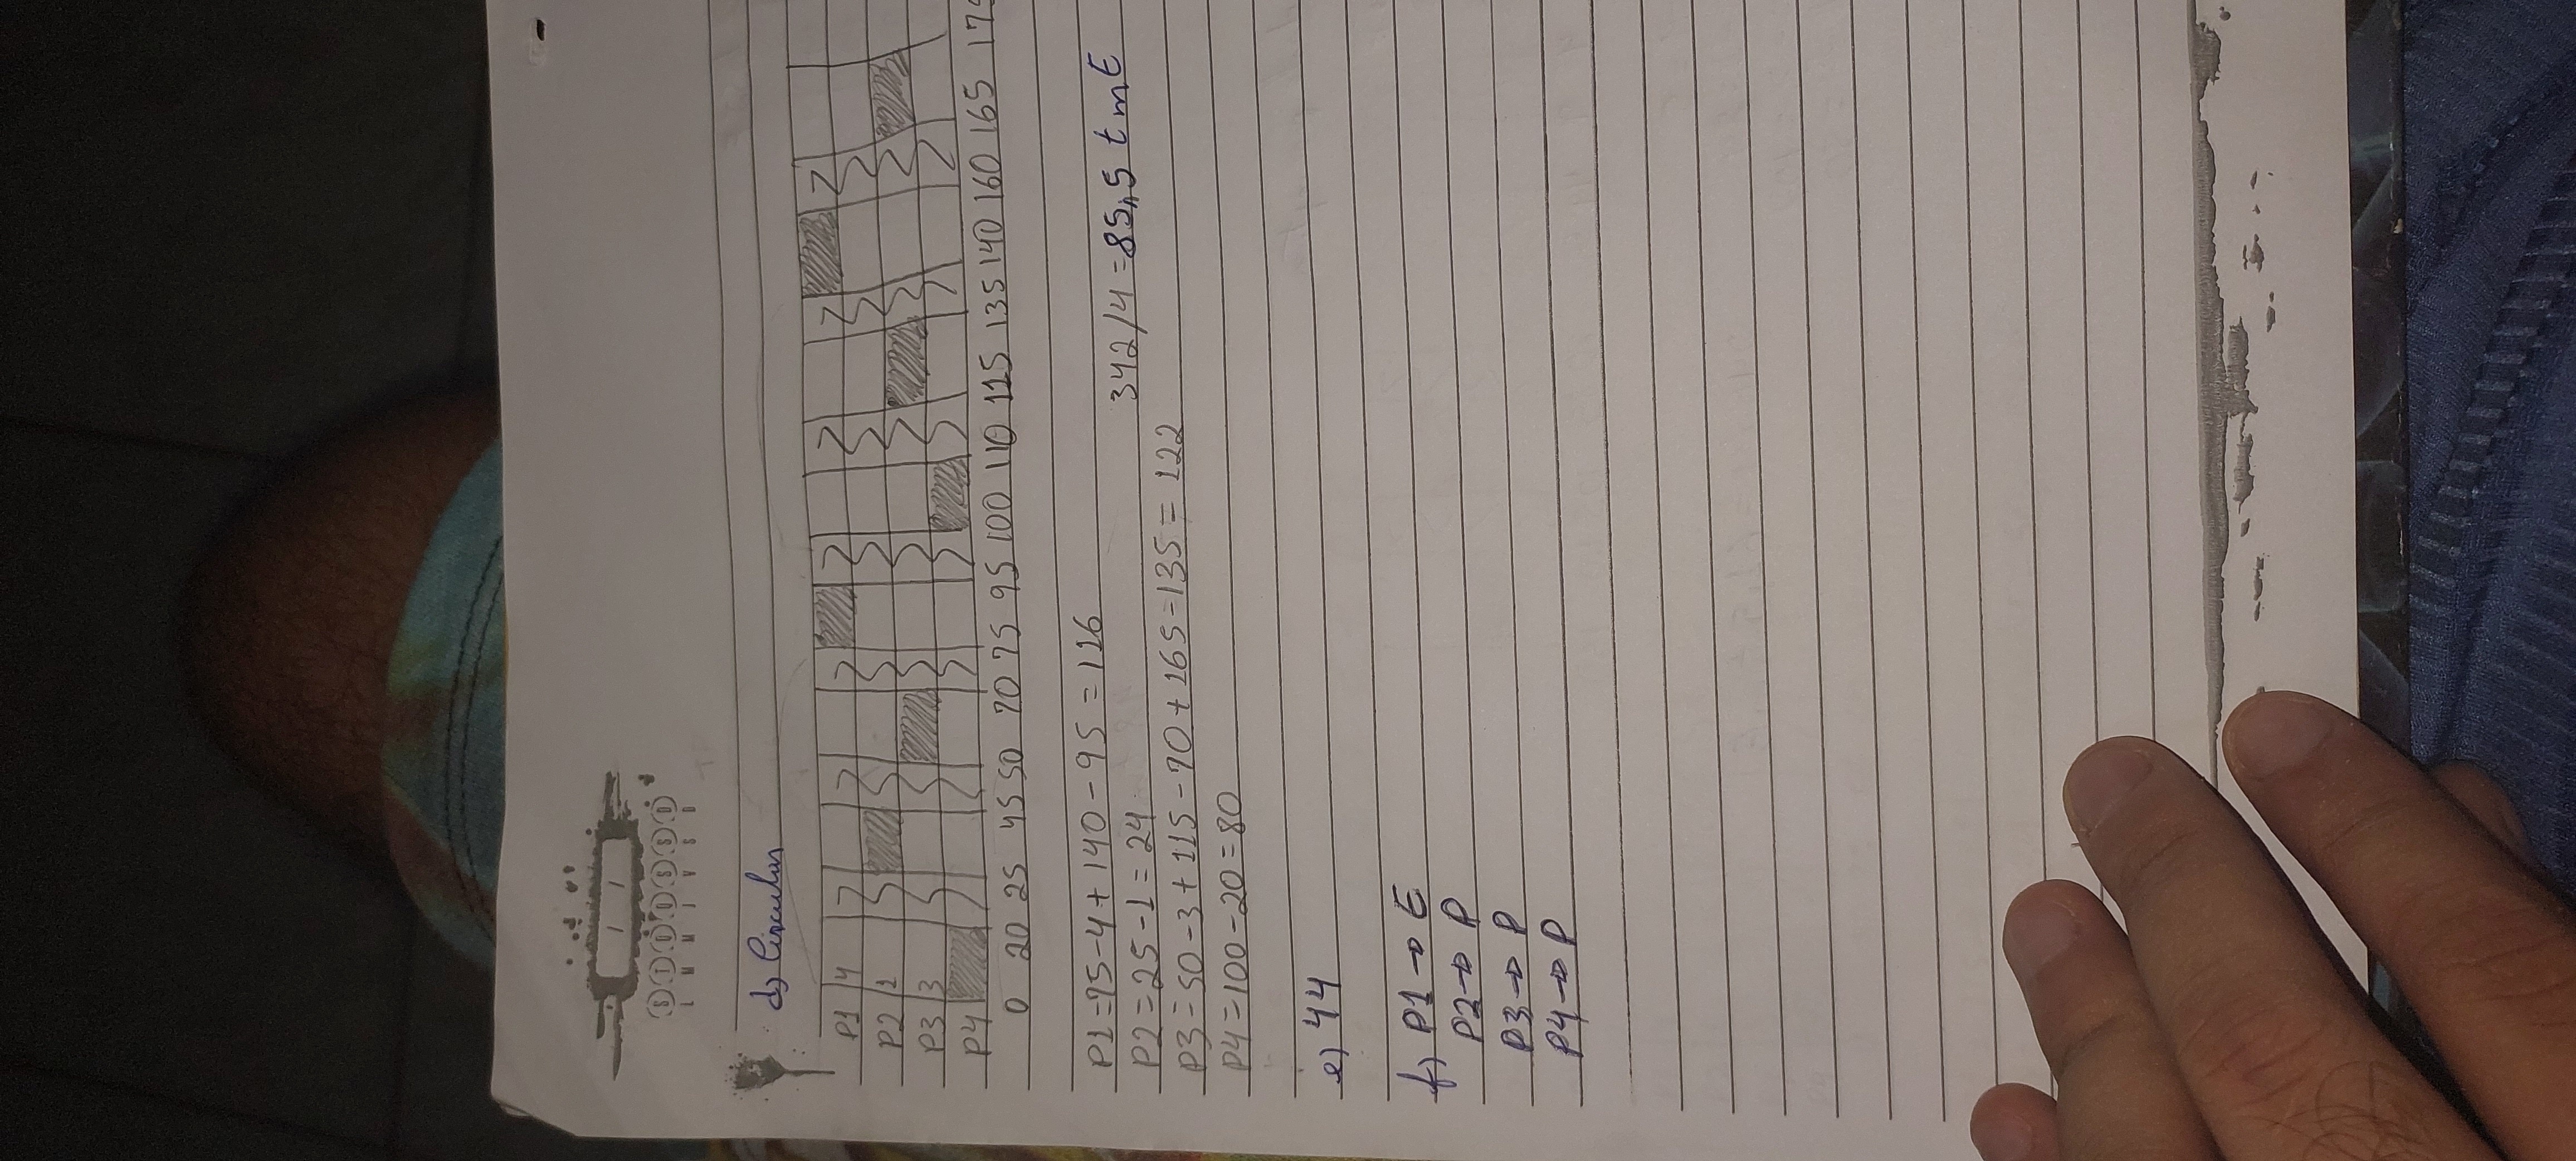 / /
S T Q Q S S D
L M M J V S D
d) Circular
P1 4
P2 1
P3 3
P4
0 20 25 45 50 70 75 95 100 110 115 135 140 160 165 175
P1=75-4+140-95=116
P2=25-1=24
342/4=85,5 tmE
P3=50-3+115-70+165-135=122
P4=100-20=80
e) 44
f) P1→E
P2→P
P3→P
P4→P